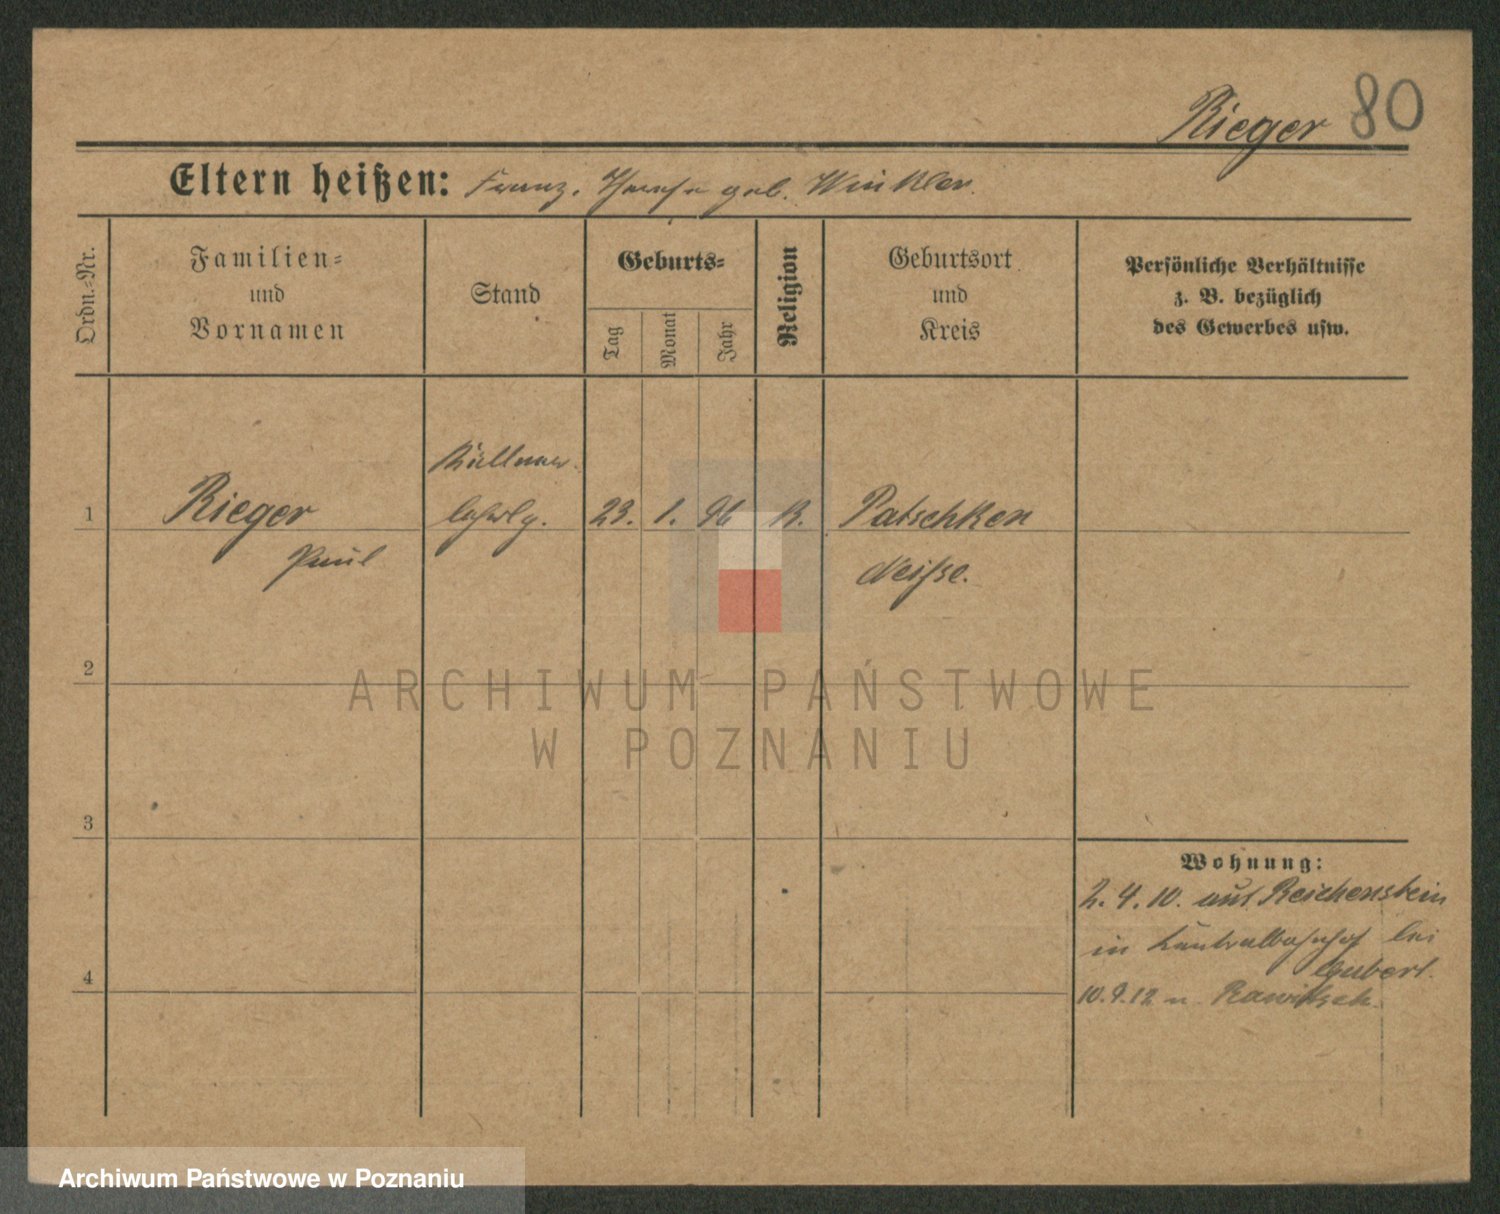 Rieger 80
Eltern heißen: Franz, geb. Winkler.
Ordn.-Nr.
Familien-
und
Vornamen
Stand
Geburts-
Tag
Monat
Jahr
Religion
Geburtsort
und
Kreis
Persönliche Verhältnisse
z. B. bezüglich
des Gewerbes usw.
Kellner
1 Rieger lehrlg. 23. 1. 96 K. Patschken
Paul Neisse.
2
ARCHIWUM PAŃSTWOWE
W POZNANIU
3
Wohnung:
2. 4. 10. aus Reichenstein
in bei
4
10. 9. 12 n. Rawitsch.
Archiwum Państwowe w Poznaniu